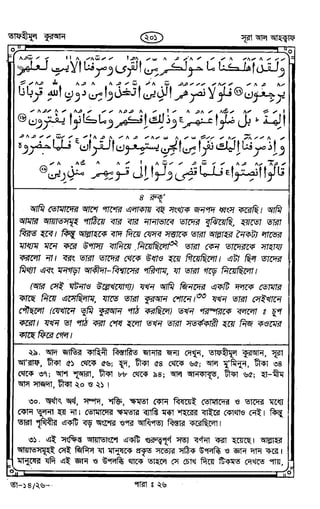 তাফহীমুল কুরআন
২০১
সূরা আল আহক্বাফ
وَلَقَدْ أَهْلَكْنَا مَا حَوْلَكُمْ مِنَ الْقُرَى وَصَرَّفْنَا الْآيَاتِ لَعَلَّهُمْ
يَرْجِعُونَ ﴿﴾ فَلَوْلَا نَصَرَهُمُ الَّذِينَ اتَّخَذُوا مِنْ دُونِ اللَّهِ قُرْبَانًا
آلِهَةً بَلْ ضَلُّوا عَنْهُمْ وَذَلِكَ إِفْكُهُمْ وَمَا كَانُوا يَفْتَرُونَ ﴿﴾
وَإِذْ صَرَفْنَا إِلَيْكَ نَفَرًا مِنَ الْجِنِّ يَسْتَمِعُونَ الْقُرْآنَ فَلَمَّا حَضَرُوهُ
قَالُوا أَنْصِتُوا فَلَمَّا قُضِيَ وَلَّوْا إِلَى قَوْمِهِمْ مُنْذِرِينَ ﴿﴾
৪ রুকূ'
আমি তোমাদের আশে পাশের এলাকায় বহু সংখ্যক জনপদ ধ্বংস করেছি। আমি
আমার আয়াতসমূহ পাঠিয়ে বার বার নানাভাবে তাদের বুঝিয়েছি, হয়তো তারা
বিরত হবে। কিন্তু আল্লাহকে বাদ দিয়ে যেসব সত্তাকে তারা আল্লাহর নৈকট্য লাভের
মাধ্যম মনে করে উপাস্য বানিয়ে নিয়েছিলো তারা কেন তাদেরকে সাহায্য
করলো না। বরং তারা তাদের থেকে উধাও হয়ে গিয়েছিলো। এটা ছিল তাদের
মিথ্যা এবং মনগড়া আকীদা-বিশ্বাসের পরিণাম, যা তারা গড়ে নিয়েছিলো।
(আর সেই ঘটনাও উল্লেখযোগ্য) যখন আমি জিনদের একটি দলকে তোমার
কাছে নিয়ে এসেছিলাম, যাতে তারা কুরআন শোনে। যখন তারা সেইখানে
পৌঁছলো (যেখানে তুমি কুরআন পাঠ করছিলে) তখন পরস্পরকে বললো : চুপ
করো। যখন তা পাঠ করা শেষ হলো তখন তারা সতর্ককারী হয়ে নিজ কওমের
কাছে ফিরে গেল।
২৯. আদ জাতির কাহিনী বিস্তারিত জানার জন্য দেখুন, তাফহীমুল কুরআন, সূরা
আ'রাফ, টীকা ৫১ থেকে ৫৬; হূদ, টীকা ৫৪ থেকে ৬৫; আল মু'মিনূন, টীকা ৩৪
থেকে ৩৭; আশ শূআরা, টীকা ৮৮ থেকে ৯৪; আল আনকাবূত, টীকা ৬৫; হা-মীম
আস সাজদা, টীকা ২০ ও ২১।
৩০. অর্থাৎ অর্থ, সম্পদ, শক্তি, ক্ষমতা কোন বিষয়েই তোমাদের ও তাদের মধ্যে
কোন তুলনা হয় না। তোমাদের ক্ষমতার ব্যাপ্তি মক্কা শহরের বাইরে কোথাও নেই। কিন্তু
তারা পৃথিবীর একটি বড় অংশের ওপর আধিপত্য বিস্তার করেছিলো।
৩১. এই সংক্ষিপ্ত আয়াতাংশে একটি গুরুত্বপূর্ণ সত্য বর্ণনা করা হয়েছে। আল্লাহর
আয়াতসমূহই সেই জিনিস যা মানুষকে প্রকৃত সত্যের সঠিক উপলব্ধি ও জ্ঞান দান করে।
মানুষের যদি এই জ্ঞান ও উপলব্ধি থাকে তাহলে সে চোখ দিয়ে ঠিকমত দেখতে পায়,
তা-১৪/২৬-
পারা : ২৬